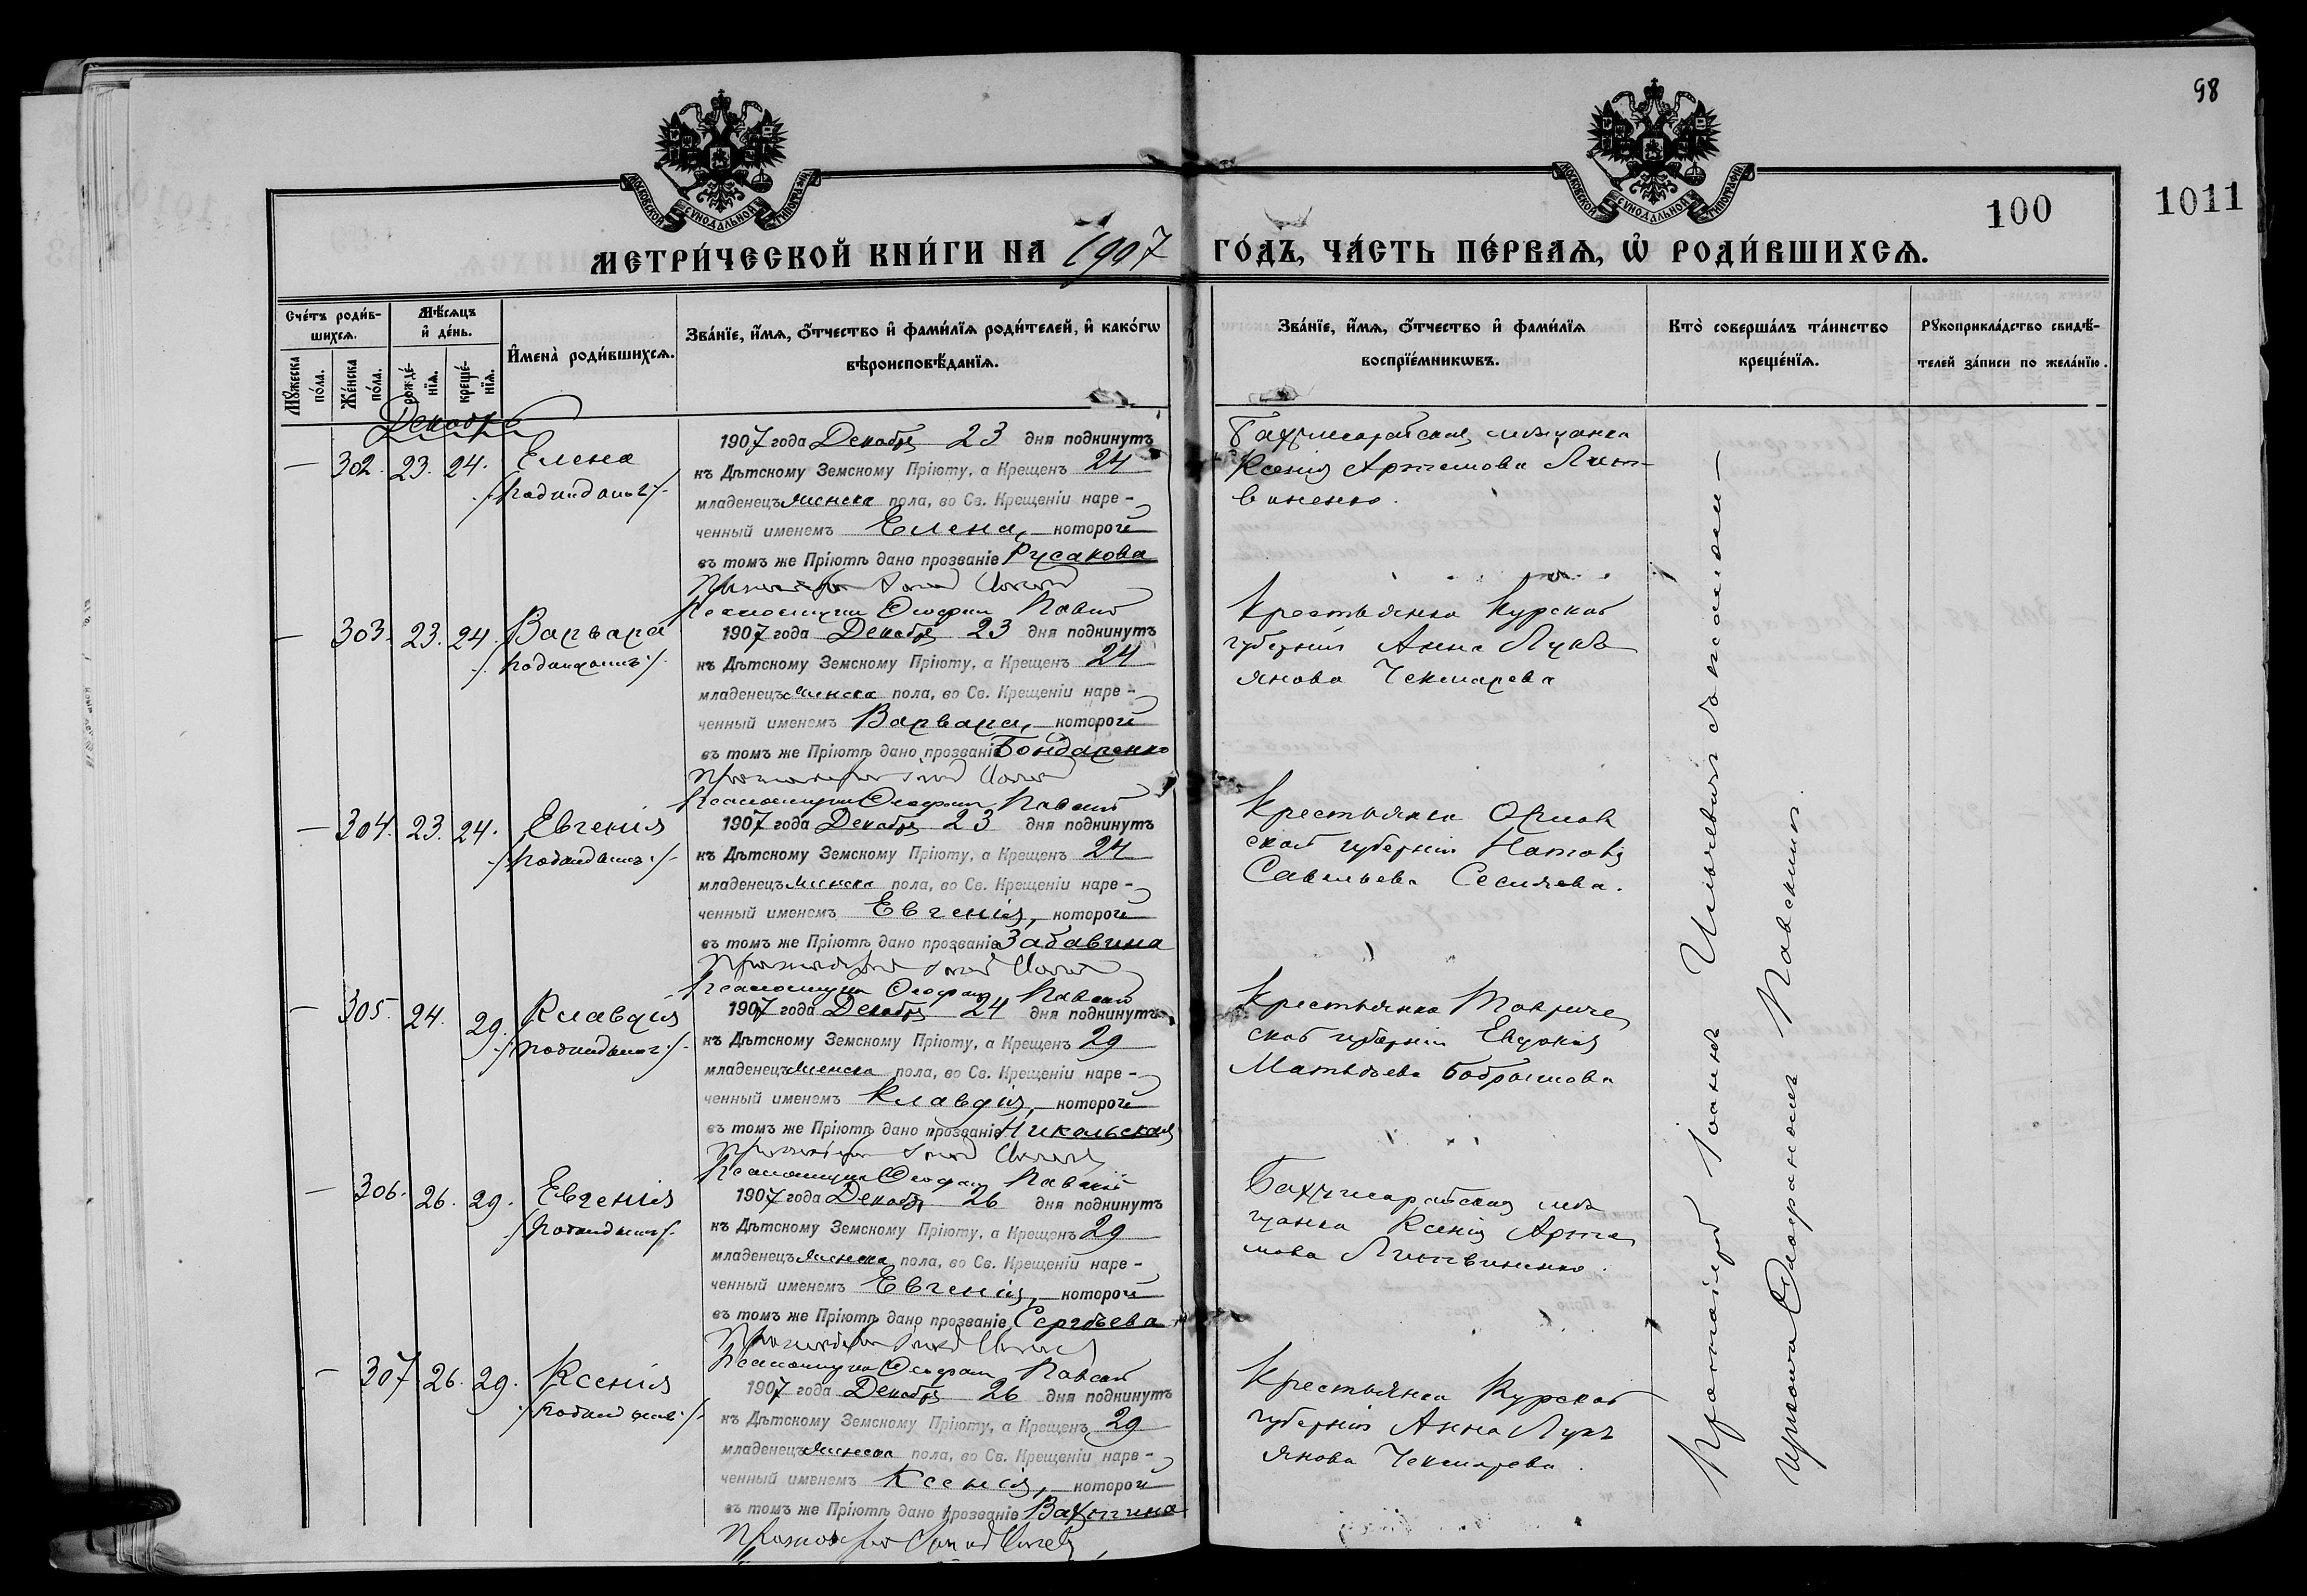 98
100
1011
МОСКОВСКОЙ СУНОДАЛЬНОЙ ТИПОГРАФІИ
МОСКОВСКОЙ СУНОДАЛЬНОЙ ТИПОГРАФІИ
МЕТРИ́ЧЕСКОЙ КНИ́ГИ НА 1907 ГО́ДЪ, ЧА́СТЬ ПЕ́РВАѦ, Ѡ҆ РОДИ́ВШИХСѦ.
Сче́тъ роди́в-
шихсѧ.
Мꙋ́жеска по́ла.
Же́нска по́ла.
Мѣ́сѧцъ
и҆ де́нь.
рожде́-
нїѧ.
креще́-
нїѧ.
И҆мена̀ роди́вшихсѧ.
Зва́нїе, и҆́мѧ, ѻ҆́тчество и҆ фами́лїѧ роди́телей, и҆ како́гѡ
вѣроисповѣ́данїѧ.
Зва́нїе, и҆́мѧ, ѻ҆́тчество и҆ фами́лїѧ
воспрїе́мникѡвъ.
Кто̀ соверша́лъ та́инство
креще́нїѧ.
Рꙋкоприкла́дство свидѣ́-
телей за́писи по жела́нїю.
Декабрь
— 302. 23. 24. Елена
/подкидышъ/
1907 года Декабря 23 дня подкинутъ
къ Дѣтскому Земскому Пріюту, а Крещенъ 24
младенецъ женска пола, во Св. Крещеніи наре-
ченный именемъ Елена, которой
въ томъ же Пріютѣ дано прозваніе Русакова
Псаломщикъ Павскій
Бахчисарайская мѣщанка
Ксенія Артемова Лит-
виненко.
— 303. 23. 24. Варвара
/подкидышъ/
1907 года Декабря 23 дня подкинутъ
къ Дѣтскому Земскому Пріюту, а Крещенъ 24
младенецъ женска пола, во Св. Крещеніи наре-
ченный именемъ Варвара, которой
въ томъ же Пріютѣ дано прозваніе Бондаренко
Псаломщикъ Павскій
Крестьянка Курской
губерніи Анна Лукъ
янова Чекмарева
— 304. 23. 24. Евгенія
/подкидышъ/
1907 года Декабря 23 дня подкинутъ
къ Дѣтскому Земскому Пріюту, а Крещенъ 24
младенецъ женска пола, во Св. Крещеніи наре-
ченный именемъ Евгенія, которой
въ томъ же Пріютѣ дано прозваніе Забавина
Псаломщикъ Павскій
Крестьянка Орлов
ской губерніи
Савельева
— 305. 24. 29. Клавдія
/подкидышъ/
1907 года Декабря 24 дня подкинутъ
къ Дѣтскому Земскому Пріюту, а Крещенъ 29
младенецъ женска пола, во Св. Крещеніи наре-
ченный именемъ Клавдія, которой
въ томъ же Пріютѣ дано прозваніе Никольская
Псаломщикъ Павскій
Крестьянка Тавриче
ской губерніи Евдокія
Матвѣева
— 306. 26. 29. Евгенія
/подкидышъ/
1907 года Декабря 26 дня подкинутъ
къ Дѣтскому Земскому Пріюту, а Крещенъ 29
младенецъ женска пола, во Св. Крещеніи наре-
ченный именемъ Евгенія, которой
въ томъ же Пріютѣ дано прозваніе Сергѣева
Псаломщикъ Павскій
Бахчисарайская мѣ
щанка Ксенія Арте
мова Литвиненко.
— 307 26. 29. Ксенія
/подкидышъ/
1907 года Декабря 26 дня подкинутъ
къ Дѣтскому Земскому Пріюту, а Крещенъ 29
младенецъ женска пола, во Св. Крещеніи наре-
ченный именемъ Ксенія, которой
въ томъ же Пріютѣ дано прозваніе
Крестьянка Курской
губерніи Анна Лукъ
янова Чекмарева.
Протоіерей Іоаннъ Ильичевичъ съ псалом—
щикомъ Павскимъ.